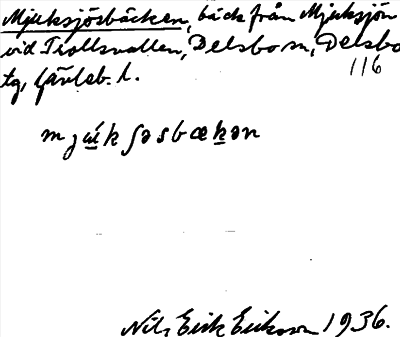 Mjuksjösbäcken, bäck från Mjuksjön
vid Trollsvallen, Delsbo sn, Delsbo
116
tg, Gävleb. l.
mjúkʃəsbækən
Nils Erik Erikson 1936.